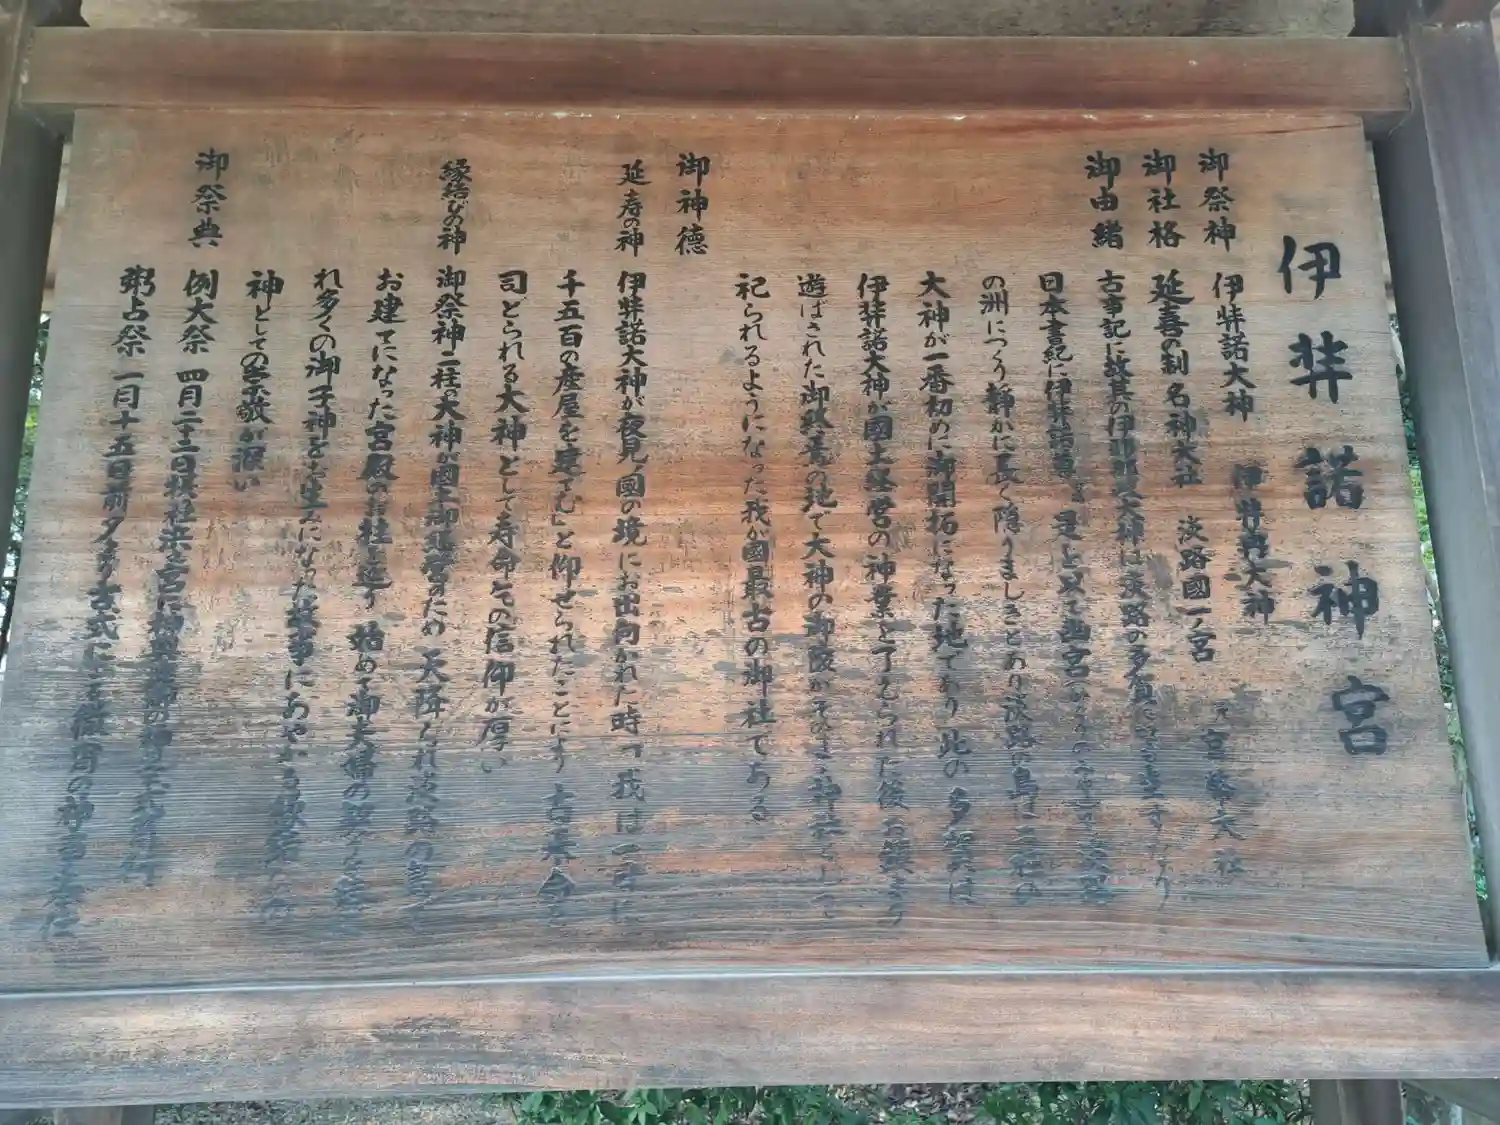 伊弉諾神宮
御祭神
伊弉諾大神 伊弉冉大神
御社格
延喜の制名神大社 淡路國一ノ宮 官幣大社
御由緒
古事記に故其の伊 大神は淡路の多賀に
日本書紀に伊弉諾尊 是を以て幽宮
の洲につくり静かに長く隠りましきとあり淡路の島は
大神が一番初めに御開拓になった地であり此の多賀は
伊弉諾大神が國土経営の神業を了えられた後お築きに
遊ばされた御終焉の地で大神の御陵がそのまま神社として
祀られるようになった我が國最古の御社である
御神徳
延寿の神
伊弉諾大神が夜見ノ國の境にお出向かれた時「我は一日に
千五百の産屋を建てむ」と仰せられたことにより古来命を
司どられる大神として寿命乞の信仰が厚い
縁結びの神
御祭神二柱の大神が國土御経営のため天降られ淡路の島に
お建てになった宮殿のお柱を廻り始めて御夫婦の
れ多くの御子神をお生みになった故事にあやかる
神としての崇敬が深い
御祭典
例大祭 四月二十二日 に神輿
粥占祭 一月十五日前夕より古式にて 神事